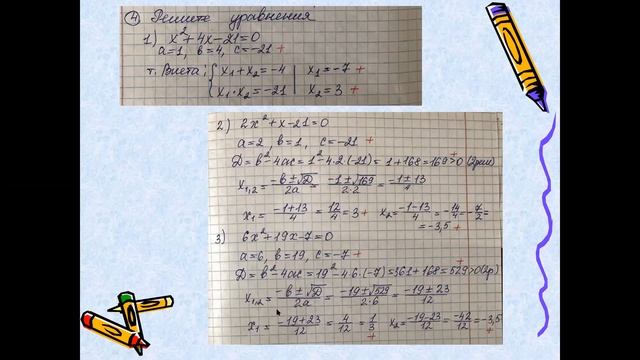 ④ Решите уравнения
1) x²+4x-21=0
a=1, в=4, c=-21 +
т. Виета: { x₁+x₂=-4 | x₁=-7 +
{ x₁·x₂=-21 | x₂=3 +
2) 2x²+x-21=0
a=2, в=1, c=-21 +
Д=в²-4ac=1²-4·2·(-21)=1+168=169>0 (2реш) +
x₁,₂= (-в±√Д)/2a = (-1±√169)/2·2 = (-1±13)/4
x₁= (-1+13)/4 = 12/4 =3 + x₂= (-1-13)/4 = -14/4 = -7/2 =
=-3,5 +
3) 6x²+19x-7=0
a=6, в=19, c=-7 +
Д=в²-4ac=19²-4·6·(-7)=361+168=529>0(2р) +
x₁,₂= (-в±√Д)/2a = (-19±√529)/2·6 = (-19±23)/12
x₁= (-19+23)/12 = 4/12 = 1/3 + x₂= (-19-23)/12 = -42/12 =-3,5 +